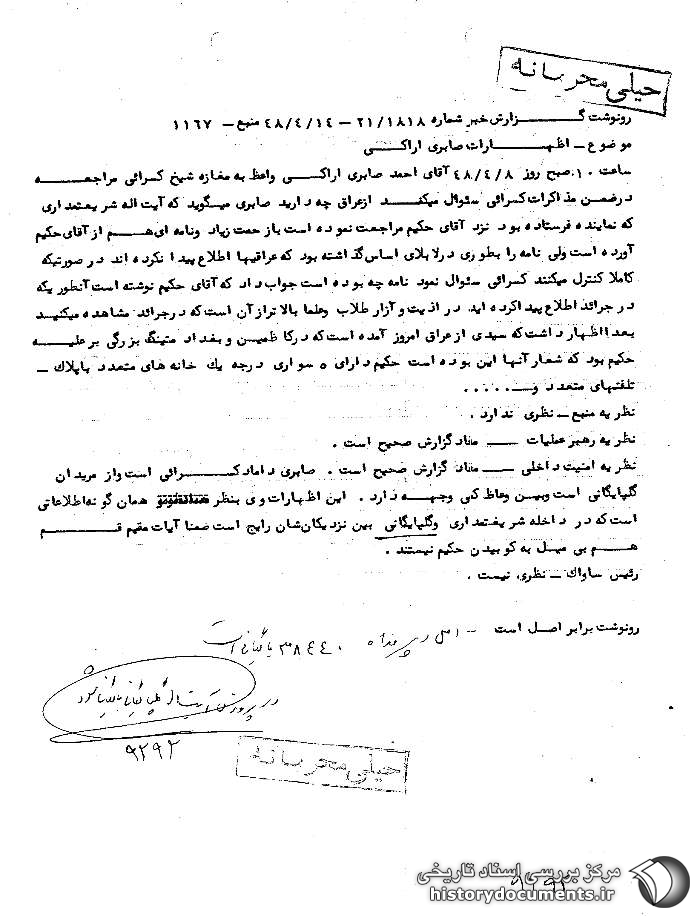 خیلی محرمانه
رونوشت گزارش خبر شماره ۲۱/۱۸۱۸ – ۴۸/۴/۱۴ منبع – ۱۱۶۷
موضوع – اظهارات صابری اراکی
ساعت ۱۰ صبح روز ۴۸/۴/۸ آقای احمد صابری اراکی واعظ به مغازه شیخ کسرائی مراجعه
درضمن مذاکرات کسرائی سئوال میکند ازعراق چه دارید صابری میگوید که آیت اله شریعتمداری
که نماینده فرستاده بود نزد آقای حکیم مراجعت نموده است باز حمت زیاد ونامه ای هم از آقای حکیم
آورده است ولی نامه را بطوری درلابلای اساس گذاشته بود که عراقیها اطلاع پیدا نکرده اند در صورتیکه
کاملا کنترل میکنند کسرائی سئوال نمود نامه چه بوده است جواب داد که آقای حکیم نوشته است آنطوریکه
در جرائد اطلاع پیدا کرده اید در اذیت و آزار طلاب وعلما بالاتراز آن است که درجرائد مشاهده میکنید
بعدا اظهار داشت که سیدی ازعراق امروز آمده است که درکاظمین و بغداد متینگ بزرگی بر علیه
حکیم بود که شعار آنها این بوده است حکیم دارای ۵ سواری درجه یک خانه های متعدد باپلاک –
تلفنهای متعدد و– .....
نظریه منبع – نظری ندارد .
نظریه رهبر عملیات – مفاد گزارش صحیح است .
نظریه امنیت داخلی – مفاد گزارش صحیح است . صابری داماد کسرائی است واز مریدان
گلپایگانی است وبین وعاظ کمی وجهه دارد . این اظهارات وی بنظر همان گونه اطلاعاتی
است که در داخله شریعتمداری وگلپایگانی بین نزدیکان شان رایج است ضمنا آیات مقیم قم
هم بی میل به کوبیدن حکیم نیستند .
رئیس ساواک – نظری نیست .
رونوشت برابر اصل است – اصل در پرونده ۳۸۴۴۰ است
در پرونده آیت اله گلپایگانی بایگانی شود
۹۲۹۲
خیلی محرمانه
۹۲۹۲
مرکز بررسی اسناد تاریخی
historydocuments.ir